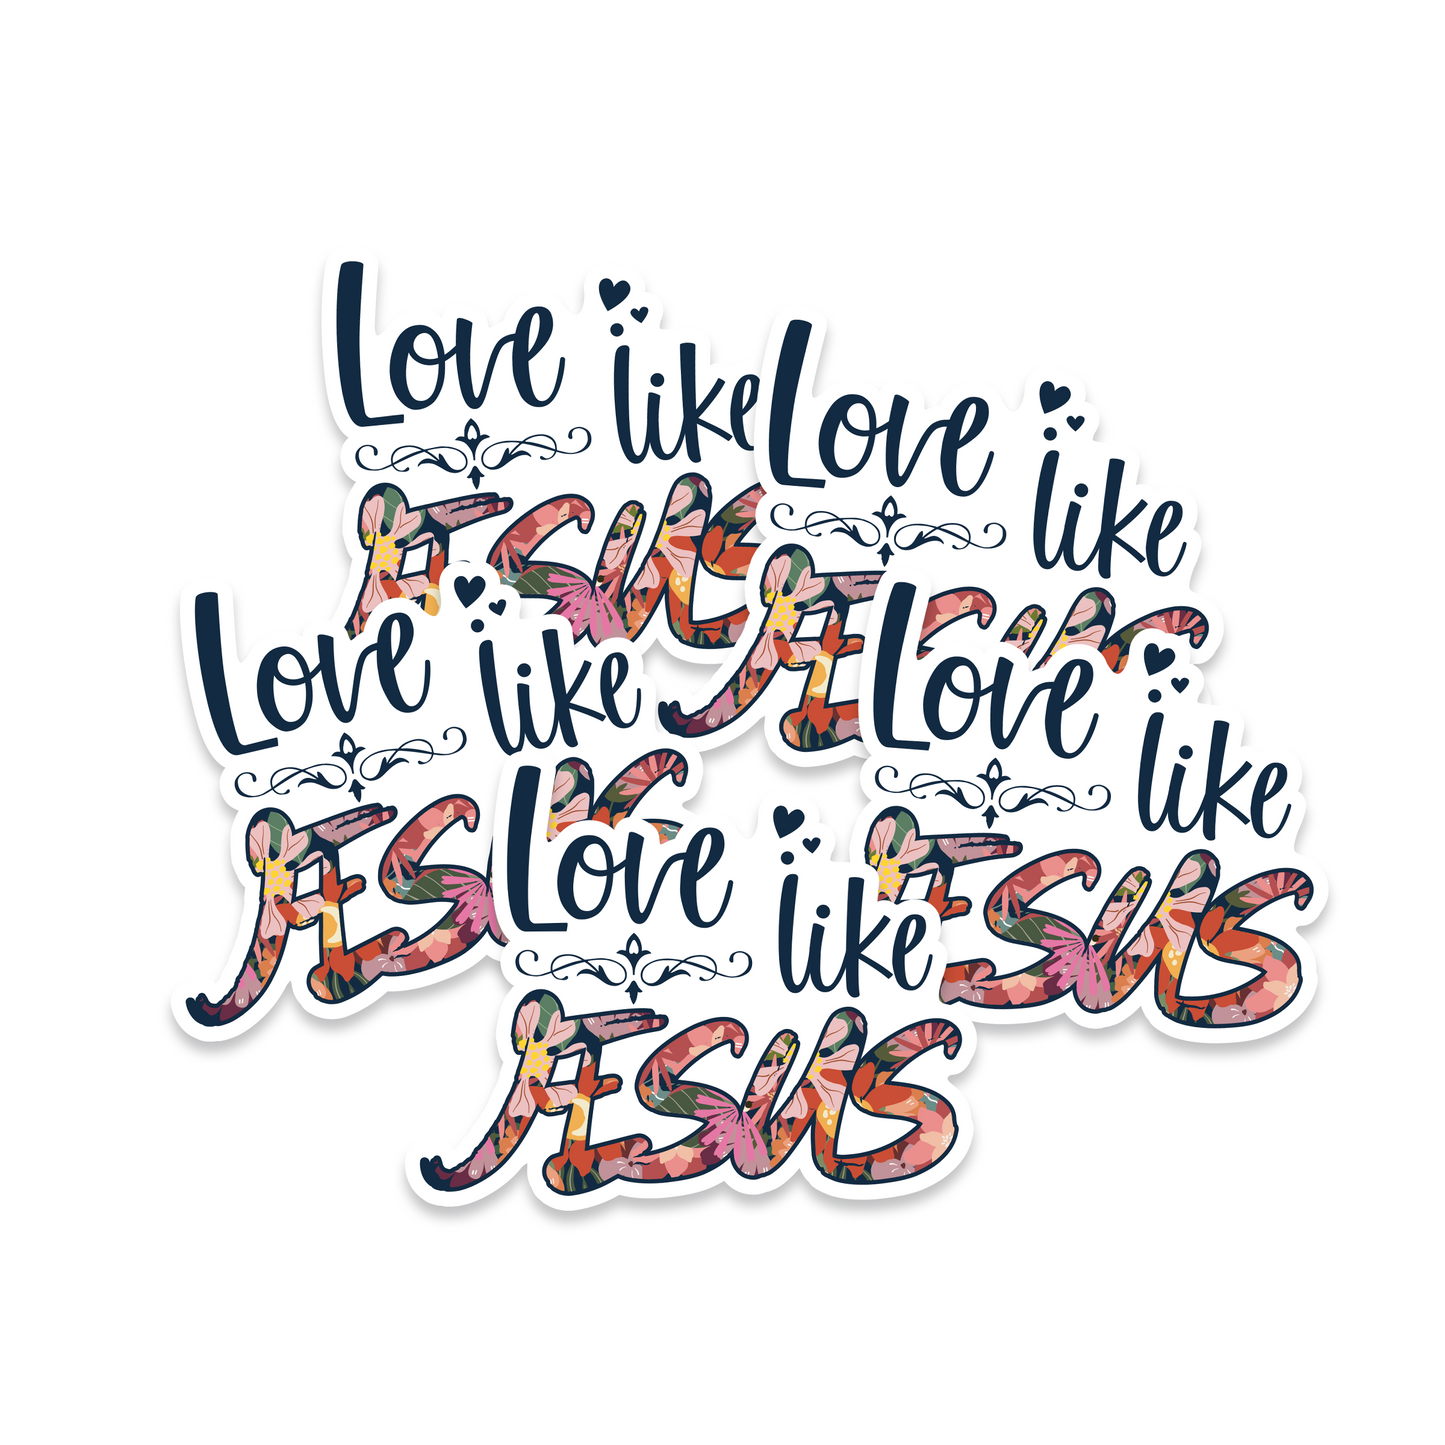 Love like
JESUS
Love like
JESUS
Love like
JESUS
Love like
JESUS
Love like
JESUS